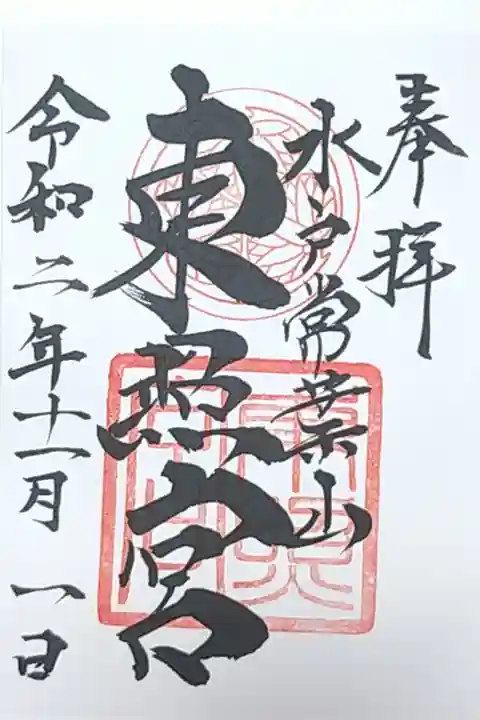 奉拝
水戸常葉山
東照宮
令和二年十一月一日